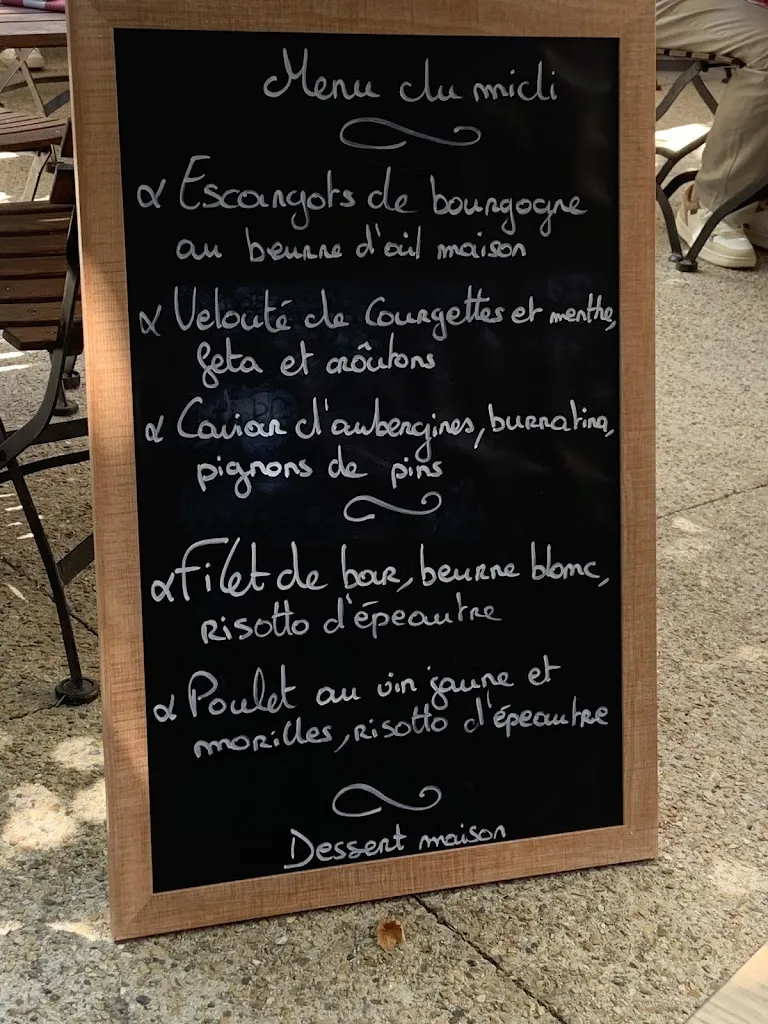 Menu du midi
α Escargots de bourgogne
au beurre d'ail maison
α Velouté de Courgettes et menthe,
feta et croûtons
α Caviar d'aubergines, burratina,
pignons de pins
α Filet de bar, beurre blanc,
risotto d'épeautre
α Poulet au vin jaune et
morilles, risotto d'épeautre
Dessert maison